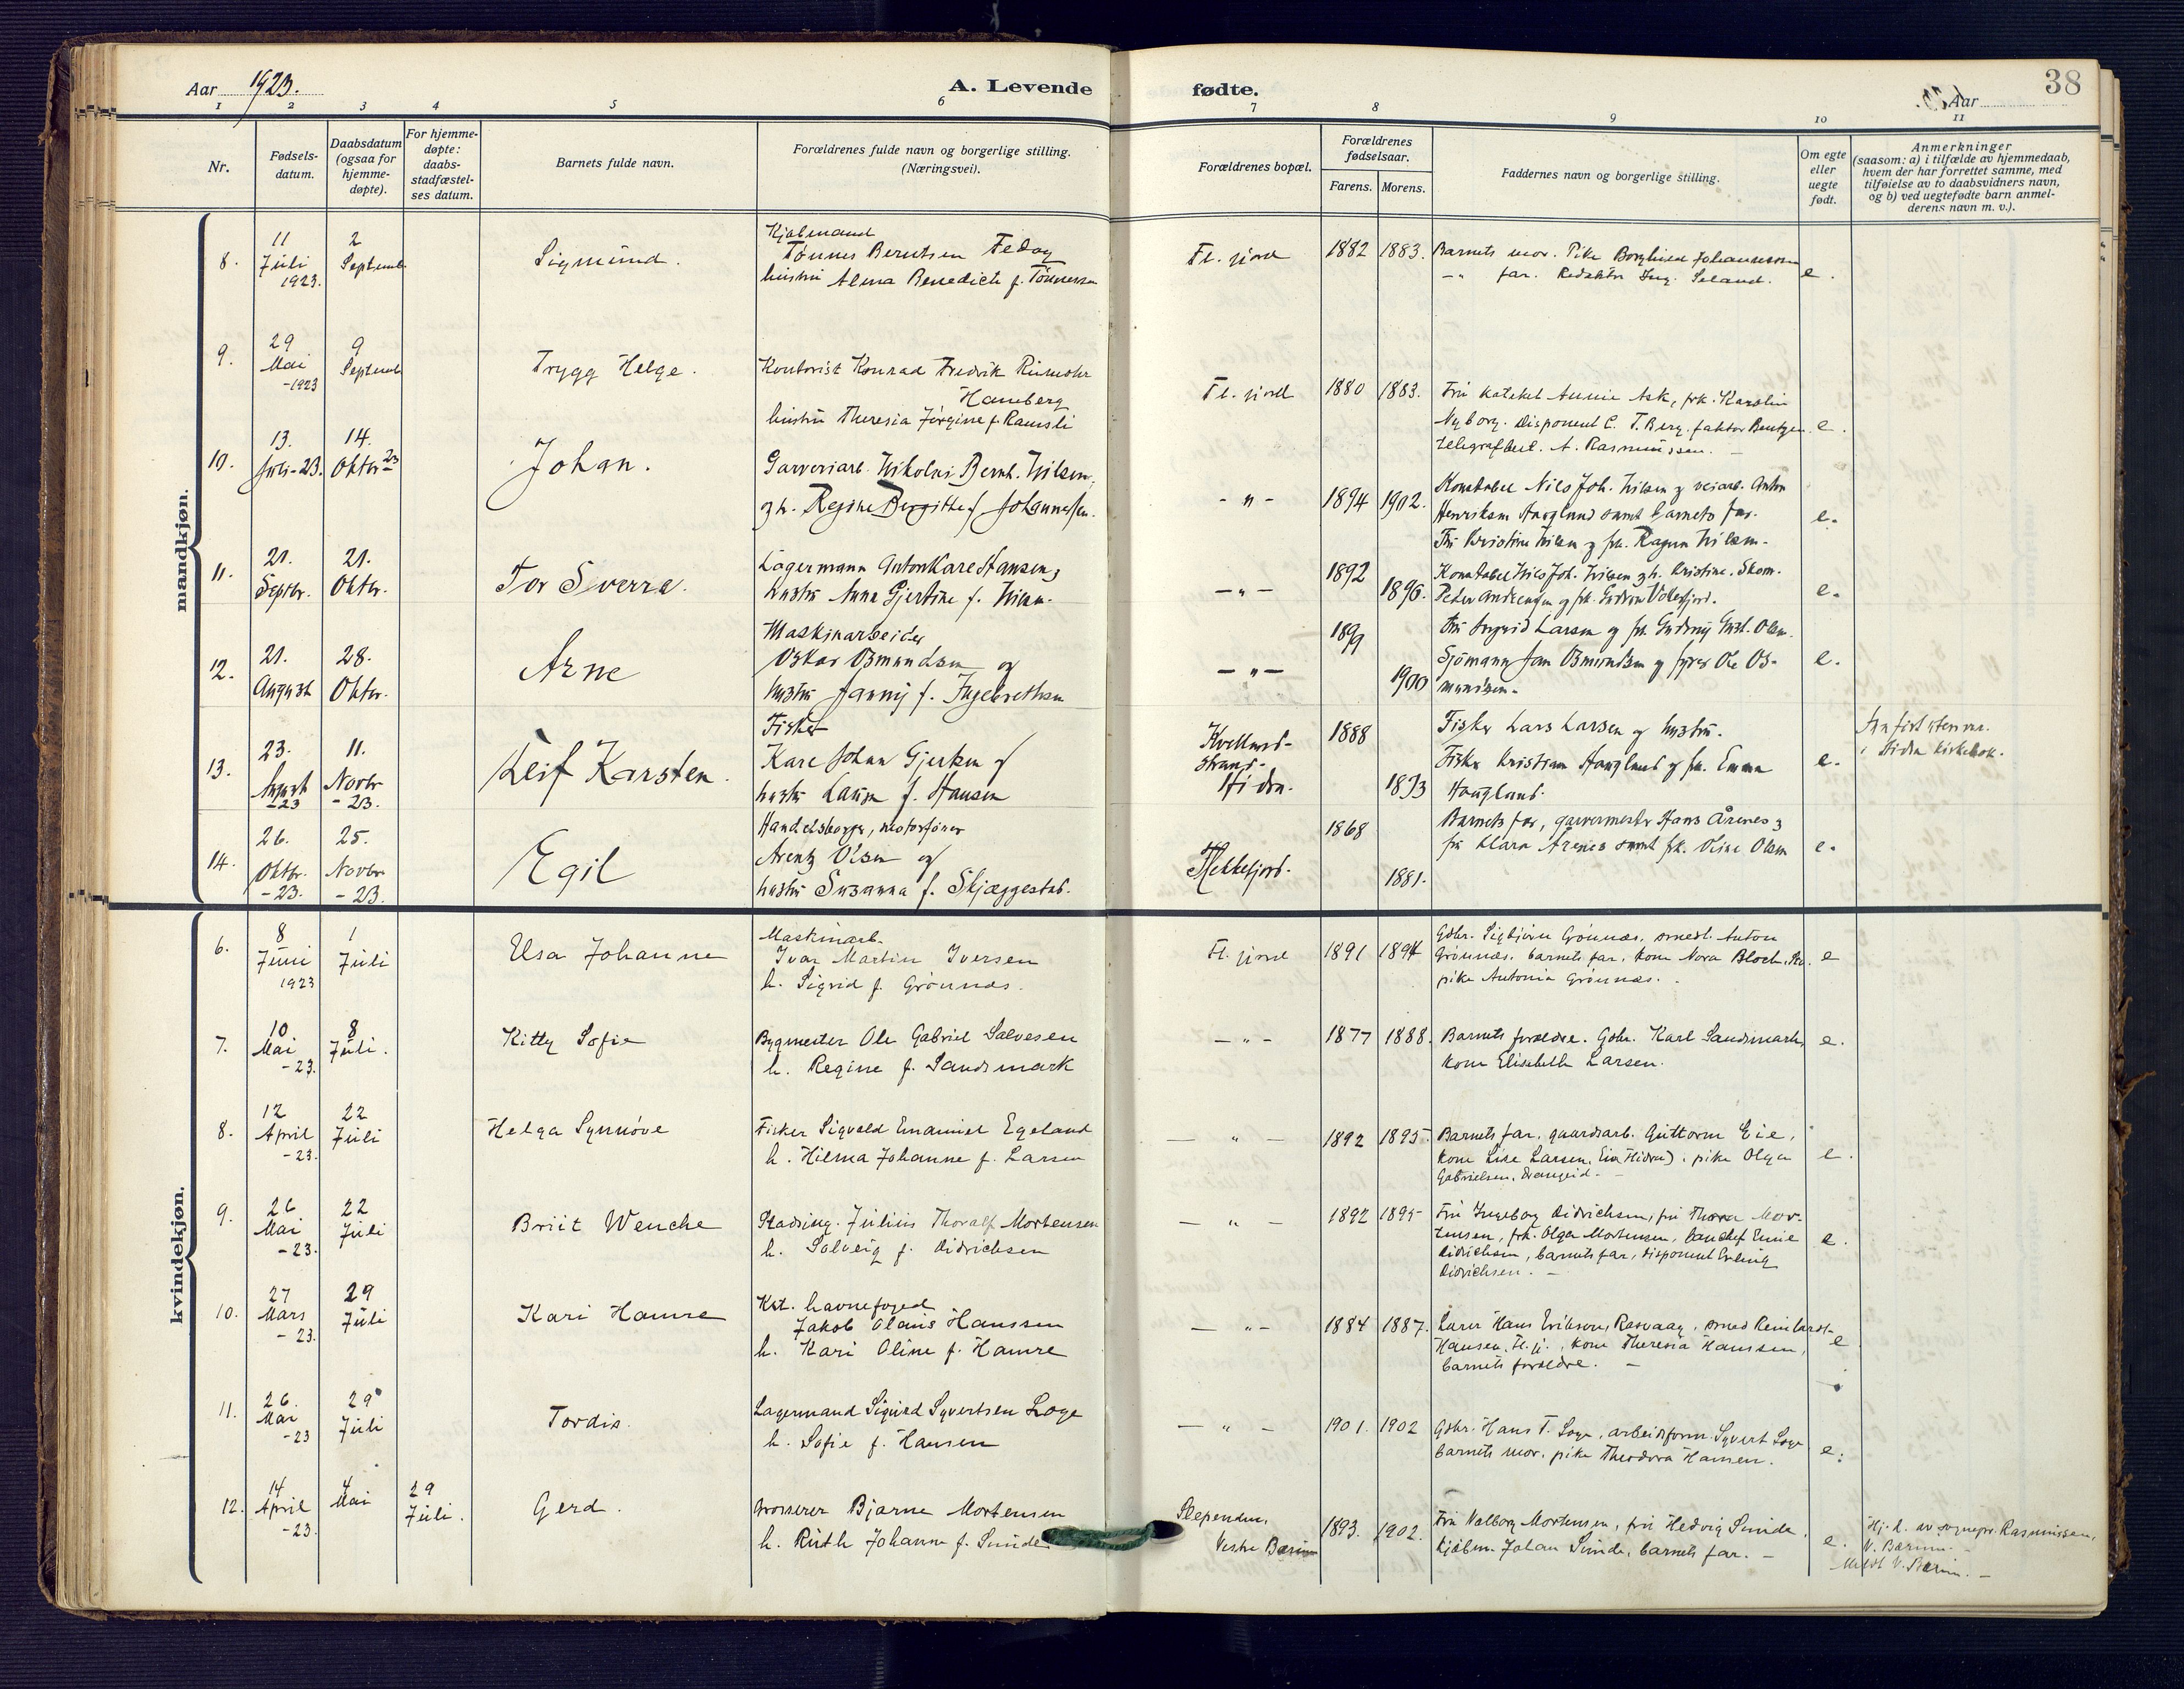 38
Aar 1923.
A. Levende fødte.
Aar
1 2 3 4 5 6 7 8 9 10 11
Nr.
Fødsels-
datum.
Daabsdatum
(ogsaa for
hjemme-
døpte).
For hjemme-
døpte:
daabs-
stadfæstel-
ses datum.
Barnets fulde navn.
Forældrenes fulde navn og borgerlige stilling.
(Næringsvei).
Forældrenes bopæl.
Forældrenes
fødselsaar.
Farens. Morens.
Faddernes navn og borgerlige stilling.
Om egte
eller
uegte
født.
Anmerkninger
(saasom: a) i tilfælde av hjemmedaab,
hvem der har forrettet samme, med
tilføielse av to daabsvidners navn,
og b) ved uegtefødte barn anmel-
derens navn m. v.).
mandkjøn.
8.
11
Juli
1923.
2
Septemb
Sigmund.
Kjøbmand
Tønnes Berntsen Fedog
hustru Alma Benedicte f. Tønnessen
Fl. fjord
1882 1883.
Barnets mor. Pike Borghild Johannessen
-"- far. Redaktør Ing. Seland.
e.
9.
29
Mai
-1923
9
Septemb
Trygg Helge.
Kontorist Konrad Fredrik Rumohr
Hamberg
hustru Theresia Jørgine f. Ramsli
Fl. fjord
1880 1883.
Fru kateket Annie Ask, frk. Karolin
Nyborg. Disponent C. T. Berg. faktor Bentzen.
telegrafbest. A. Rasmussen. -
e.
10.
13.
Juli-23.
14.
Oktbr 23
Johan.
Garveriarb. Nikolai Bernh. Nilsen,
og h. Regine Bergitte f. Johannessen.
- " -
1894 1902.
Konstabel Nils Joh. Nilsen og veiarb. Anton
Henriksen Haugland samt barnets far.
Fru Kristine Nilsen og frk. Ragna Nilsen.
e.
11.
21.
Septbr.
21.
Oktbr.
Tor Sverre.
Lagermann Anton Kare Hansen,
hustru Anna Gjertine f. Nilsen.
- " -
1892
1896.
Konstabel Nils Joh. Nilsen og h. Kristine. Skom.
Peter Andreassen og frk. Gudrun Vollesfjord.
e.
12.
21.
August
28.
Oktbr.
Arne
Maskinarbeider
Oskar Osmundsen og
hustru Fanny f. Ingebrethsen
- " -
1899
1900
Fru Ingrid Larsen og frk. Gudny Olsen.
Sjømann Jan Osmundsen og fyrb. Ole Os-
mundsen.
e.
13.
23.
August
-23
11.
Novbr
-23.
Leif Karsten.
Fisker
Kare Johan Gjertsen og
hustru Laura f. Hansen
Kvelland-
strand-
Hidra.
1888
1893
Fisker Lars Larsen og hustru.
Fisker Kristian Haugland og frk. Emma
Haugland.
e.
i Hidra kirkebok.
14.
26.
Oktbr.
-23.
25.
Novbr
-23.
Egil
Handelsborger, motorfører
Arentz Olsen og
hustru Susanna f. Skjæggestad.
Flekkefjord.
1868
1881.
Barnets far, garvermester Hans Årenes og
fru Klara Årenes samt frk. Oline Olsen
e.
kvindekjøn.
6.
8
Juni
1923
1
Juli
Elsa Johanne
Maskinarb.
Ivar Martin Iversen
h. Sigrid f. Grønnæs.
Fl. fjord
1891 1894
Gdbr. Sigbjørn Grønnæs, smedl. Anton
Grønnæs, barnets far, kone Nora Bloch,
pike Antonia Grønnæs.
e
7.
10
Mai
-23.
8
Juli.
Kitty Sofie
Bygmester Ole Gabriel Salvesen
h. Regine f. Sandsmark
- " -
1877 1888.
Barnets forældre. Gdbr. Karl Sandsmark,
kone Elisabeth Larsen.
e.
8.
12
April
-23.
22
Juli
Helga Synnøve
Fisker Sigvald Emanuel Egeland
h. Hilma Johanne f. Larsen
- " -
1892 1895.
Barnets far, gaardsarb. Guttorm Eie,
kone Lise Larsen, Eie (Hidra). pike Olga
Gabrielsen, Drangeid. -
e.
9.
26
Mai
-23.
22
Juli
Briit Wenche
Stadsing. Julius Thoralf Mortensen
h. Solveig f. Didrichsen
- " -
1892 1895
Fru Ingeborg Didrichsen, fru Thora Mor-
tensen, frk. Olga Mortensen, banchef Emil
Didrichsen, barnets far, disponent Erling
Didrichsen. -
e.
10.
27
Mars
-23.
29
Juli
Kari Hamre
Kst. havnefoged
Jakob Olaus Hanssen
h. Kari Oline f. Hamre
- " -
1884 1887.
Lærer Hans Eriksen, Rasvaag, smed Reinhardt
Hansen, Fl. fj., kone Theresia Hanssen,
barnets forældre. -
e
11.
26.
Mai
-23
29
Juli
Tordis.
Lagermand Sigurd Syvertsen Loge
h. Sofie f. Hansen
- " -
1901. 1902
Gdbr. Hans T. Loge, arbeidsform. Syvert Loge
barnets mor, pike Theodora Hansen.
e.
12.
14
April
-23.
4
Mai
29
Juli.
Gerd.
Grosserer Bjarne Mortensen
h. Ruth Johanne f. Sunde
Slependen,
Vestre Bærum
1893. 1902.
Fru Valborg Mortensen, fru Hedvig Sunde,
kjøbm. Johan Sunde, barnets far. -
e.
Hj. d. av sognepr. Rasmussen,
V. Bærum.
Meldt V. Bærum. -